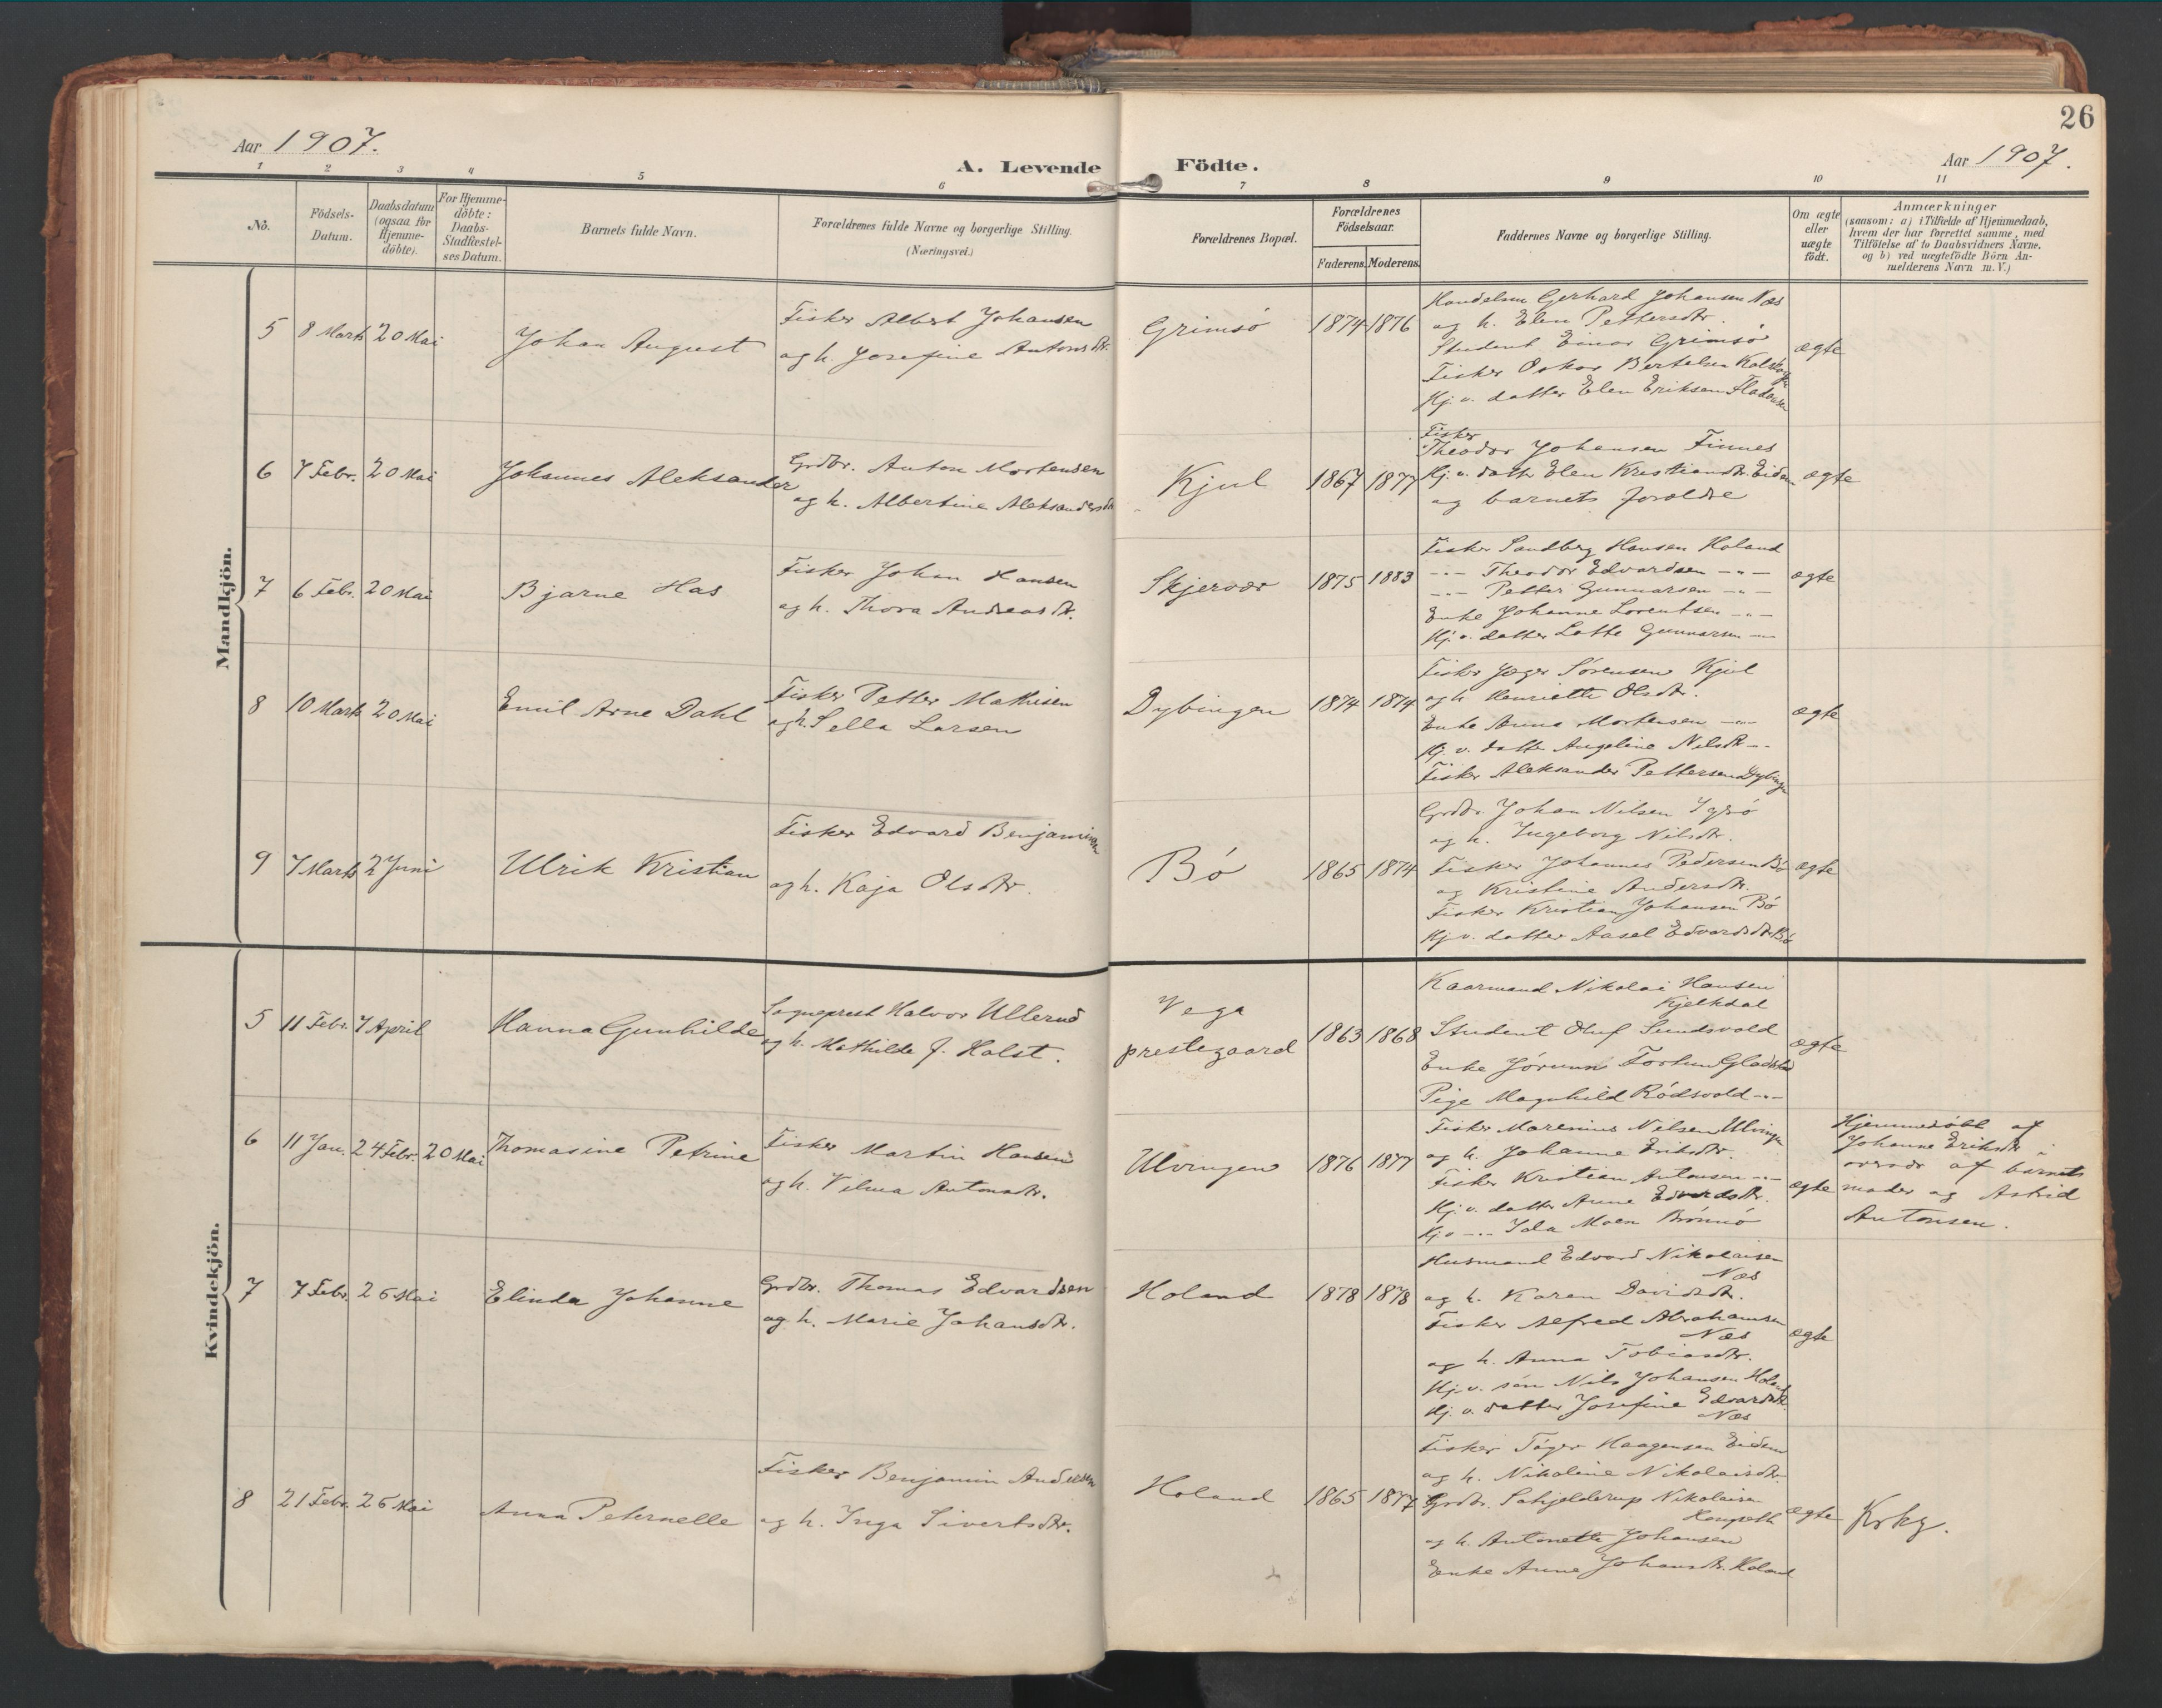 26
Aar 1907.
A. Levende Födte.
Aar 1907.
1 2 3 4 5 6 7 8 9 10 11
No.
Födsels-
Datum.
Daabsdatum
(ogsaa for
Hjemme-
döbte).
For Hjemme-
döbte:
Daabs-
Stadfæstel-
ses Datum.
Barnets fulde Navn.
Forældrenes fulde Navne og borgerlige Stilling.
(Næringsvei.)
Forældrenes Bopæl.
Forældrenes
Födselsaar.
Faderens. Moderens.
Faddernes Navne og borgerlige Stilling.
Om ægte
eller
uægte
födt.
Anmærkninger
(saasom: a) i Tilfælde af Hjemmedaab,
hvem der har forrettet samme, med
Tilföielse af to Daabsvidners Navne,
og b) ved uægtefödte Börn An-
melderens Navn m. V.)
Mandkjön.
5 8 Marts 20 Mai
Johan August
Fisker Albert Johansen
og h. Josefine Antonsdtr.
Grimsø
1874 1876
Handelsm Gerhard Johansen Næs
og h. Elen Pettersdtr.
Student Einar Grimsø
Fisker Oskar Bertelsen
Hj. v. datter Elen Eriksen
ægte
6 7 Febr. 20 Mai
Johannes Aleksander
Grdbr. Anton Mortensen
og h. Albertine Aleksandersdtr
Kjul
1867 1877
Fisker
Theodor Johansen Finnes
Hj. v. datter Elen Kristiansdtr. Eidem
og barnets forældre
ægte
7 6 Febr. 20 Mai
Bjarne Has
Fisker Johan Hansen
og h. Thora Andreasdtr.
Skjervær
1875 1883
Fisker Sandberg Hansen Holand
-"- Theodor Edvardsen -"-
-"- Petter Gunnarsen -"-
Enke Johanne Lorentsen -"-
Hj. v. datter Lotte Gunnarsen -"-
ægte
8 10 Marts 20 Mai
Emil Arne Dahl
Fisker Petter Mathisen
og h. Sella Larsen
Dybingen
1874 1874
Fisker Jæger Sørensen Kjul
og h Henriette Olsdtr.
Enke Anna Mortensen -"-
Hj. v. datter Angeline Nilsdtr -"-
Fisker Aleksander Pettersen Dybingen
ægte
9 7 Marts 2 Juni
Ulrik Kristian
Fisker Edvard Benjaminsen
og h. Kaja Olsdtr.
Bó
1865 1874
Grdbr. Johan Nilsen
og h. Ingeborg Nilsdtr.
Fisker Johannes Pedersen Bó
og Kristine Andersdtr.
Fisker Kristian Johansen Bó
Hj. v. datter Aasel Edvardsdtr. Bó
ægte
Kvindekjön.
5 11 Febr. 7 April
Hanna Gunhilde
Sogneprest Halvor Ullerud
og h. Mathilde J. Holst.
Vega
prestegaard
1863 1868
Kaarmand Nikolai Hansen
Kjelkdal
Student Oluf Sundsvold
Enke Jørunn Fortun Gladstad
Pige Magnhild Rødsvold -"-
ægte
6 11 Jan. 24 Febr. 20 Mai
Thomasine Petrine
Fisker Martin Hansen
og h. Velma Antonsdtr.
Ulvingen
1876 1877
Fisker Marenius Nilsen Ulvingen
og h. Johanne Eriksdtr.
Fisker Kristian Antonsen -"-
Hj. v. datter Anne Edvardsdtr.
Hj. v -"- Ida Moen Brønnø
ægte
Hjemmedøbt af
Johanne Eriksdtr i
nærvær af barnets
moder og Astrid
Antonsen.
7 7 Febr. 26 Mai
Elinda Johanne
Grdbr. Thomas Edvardsen
og h. Marie Johansdtr.
Holand
1878 1878
Husmand Edvard Nikolaisen
Næs
og h. Karen Davidsdtr.
Fisker Alfred Abrahamsen
Næs
og h. Anna Tobiasdtr.
Hj. v. søn Nils Johansen Holand
Hj. v. datter Josefine Edvardsdtr.
Næs
ægte
8 21 Febr. 26 Mai
Anna Peternelle
Fisker Benjamin Andersen
og h. Inga Sivertsdtr.
Holand
1865 1877
Fisker Tøger Haagensen Eidem
og h. Nikoline Nikolaisdtr
Grdbr. Schjelderup Nikolaisen
og h. Antonette Johansen
Enke Anne Johansdtr. Holand
ægte